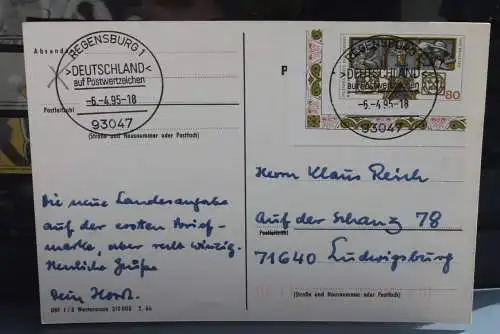 Absender
REGENSBURG 1
>DEUTSCHLAND<
auf Postwertzeichen
-6.-4.95-18
93047
Postleitzahl
(Straße und Hausnummer oder Postfach)
Die neue Landesangabe
auf der ersten Brief-
marke, aber recht winzig.
Herzliche Grüße
Dein Horst.
REGENSBURG 1
>DEUTSCHLAND<
auf Postwertzeichen
-6.-4.95-18
93047
80
P
Herrn Klaus Reisch
Auf der Schanz 78
Postleitzahl
71640 Ludwigsburg
(Straße und Hausnummer oder Postfach)